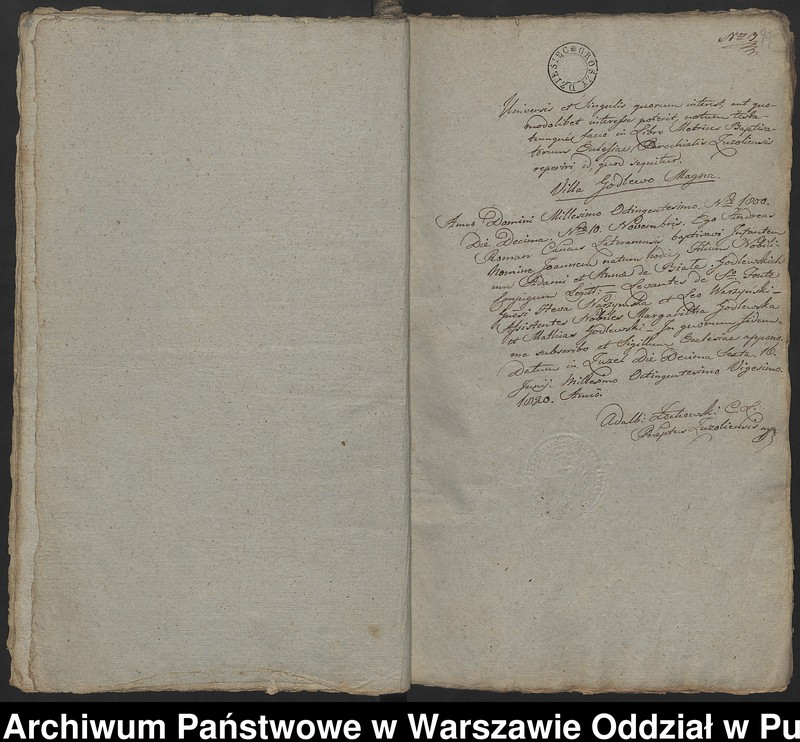 Nro 3
DZIESIĘC GROSZY
Universis et Singulis quorum interest, aut quo-
modolibet interesse poterit, notum testa-
tumque facio in Libro Metrices Baptisa-
torum Ecclesiae Parochialis Zuzoliensis
reperiri id, quod sequitur.
Villa Godlewo Magna.
Anno Domini Millesimo Octingentesimo. Nro 1800.
Die Decima. Nro 10. Novembris. Ego Andreas
Roman Cancus Lateranensis baptisavi Infantem
Nomine Joannem natum hodie, Filium Nobili-
um Adami et Anna de Białe, Godlewskich
Conjugum Legit:— Levantes de So Fonte
Gnosi Heva Narzymska et Leo Warzynski—
Assistentes Nobiles Margaritha Godlewska
et Mathias Godlewski— In quorum fidem
me subscribo et Sigillum Ecclesiae appono.
Datum in Zuzel Die Decima Sexta. 16.
Junij. Millesimo Octingentesimo Vigesimo.
1820. Anno.
Adalb: Żochowski C. L.
Praeptus Zuzoliensis mp
Archiwum Państwowe w Warszawie Oddział w Pu